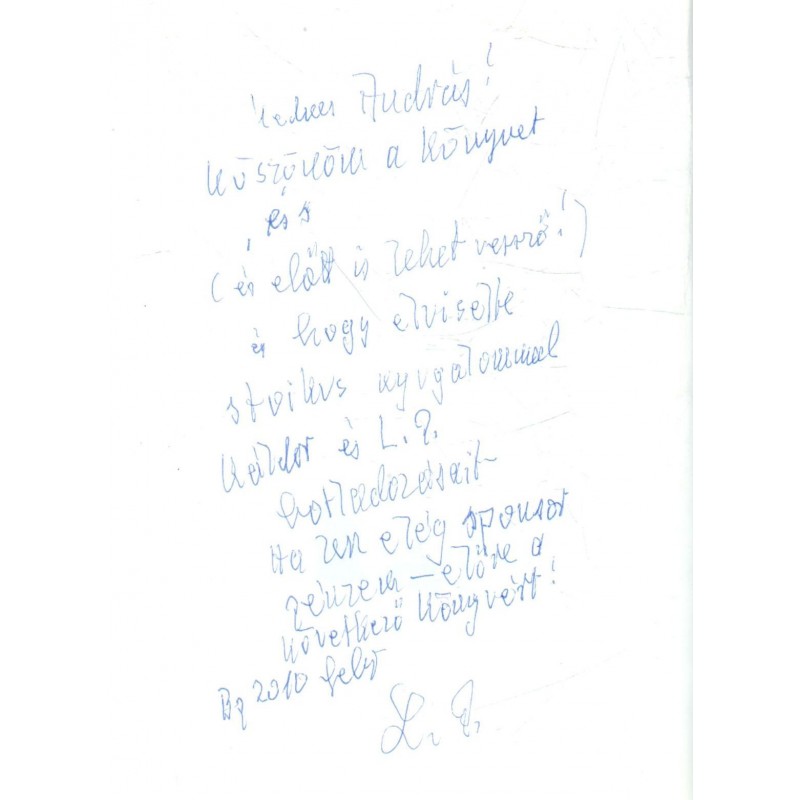 Kedves András!
Köszönöm a könyvet
, és
(és előtt is lehet vessző!)
és hogy elviselte
stoikus nyugalommal
Káldor és L. P.
hortladozásait
Ha lesz elég sponsor
pénzem – előre a
következő könyvért!
Bp 2010 febr
L. P.